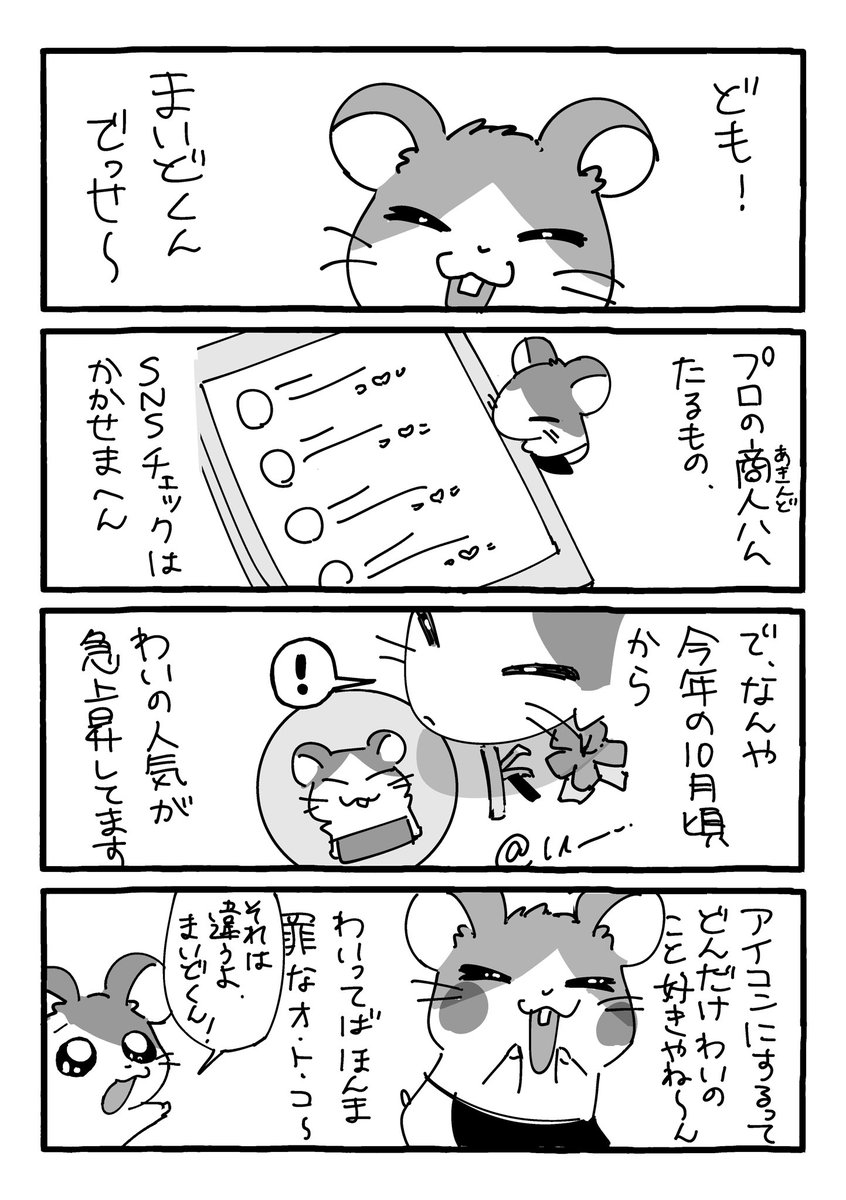 ども!
まいどくん
でっせ〜
プロの商人ハん
あきんど
たるもの、
SNSチェックは
かかせまへん
で、なんや
今年の10月頃
から
!
わいの人気が
急上昇してます
アイコンにするって
どんだけわいの
こと好きやね〜ん
わいってばほんま
罪なオ・ト・コ〜
それは
違うよ、
まいどくん!